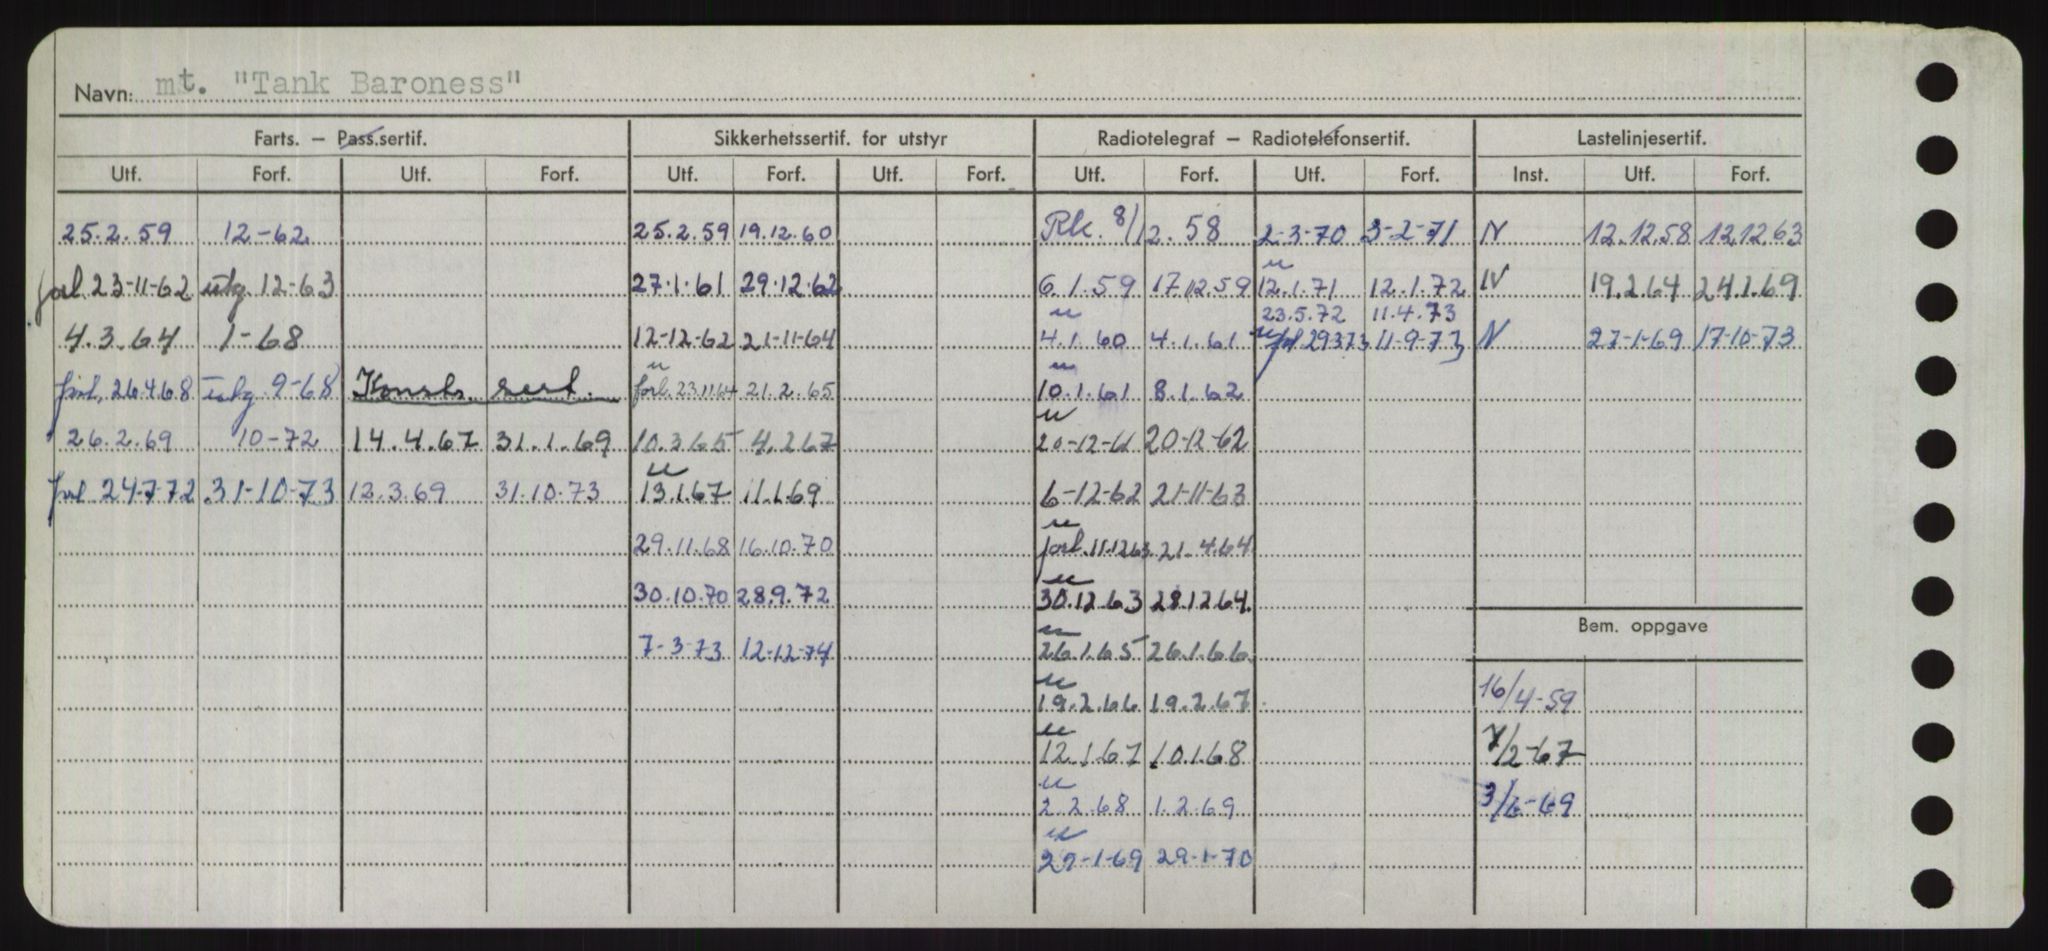 Navn: mt. "Tank Baroness"
Farts. — Pass.sertif. Sikkerhetssertif. for utstyr Radiotelegraf — Radiotelefonsertif. Lastelinjesertif.
Utf. Forf. Utf. Forf. Utf. Forf. Utf. Forf. Utf. Forf. Utf. Forf. Inst. Utf. Forf.
25.2.59 12-62 25.2.59 19.12.60 Rk. 8/12.58 2-3-70 3-2-71 N 12.12.58 12.12.63
u
forl 23-11-62 utg 12-63 27.1.61 29.12.62 6.1.59 17.12.59 12.1.71 12.1.72 N 19.2.64 24.1.69
u 23.5.72 11.4.73
4.3.64 1-68 12-12-62 21-11-64 4.1.60 4.1.61 u forl 29373 11-9-73 N 27-1-69 17-10-73
u u
forl. 26.4.68 utg. 9-68 Konstr. sert. forl. 23.11.64 21.2.65 10.1.61 8.1.62
u
26.2.69 10-72 14.4.67 31.1.69 10.3.65 4.2.67 20-12-61 20-12-62
u
forl 24-7-72 31-10-73 12.3.69 31.10.73 13.1.67 11.1.69 6-12-62 21-11-63
u
29.11.68 16.10.70 forl. 11.12.63 21.4.64
u
30.10.70 28.9.72 30.12.63 28.12.64
Bem. oppgave
u
7-3-73 12-12-74 26.1.65 26.1.66
u
19.2.66 19.2.67 16/4-59
u
12.1.67 10.1.68 7/2-67
u
2.2.68 1.2.69 3/6-69
u
29-1-69 29-1-70